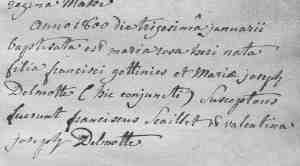 regina Mater
anno 1800 die trigesimâ januarii
baptisata est maria rosa heri nata
filia francisci gottinies et Mariæ joseph
Delmotte (hic conjuncti) Susceptores
fuerunt franciscus Scaillet & valentina
joseph Delmotte